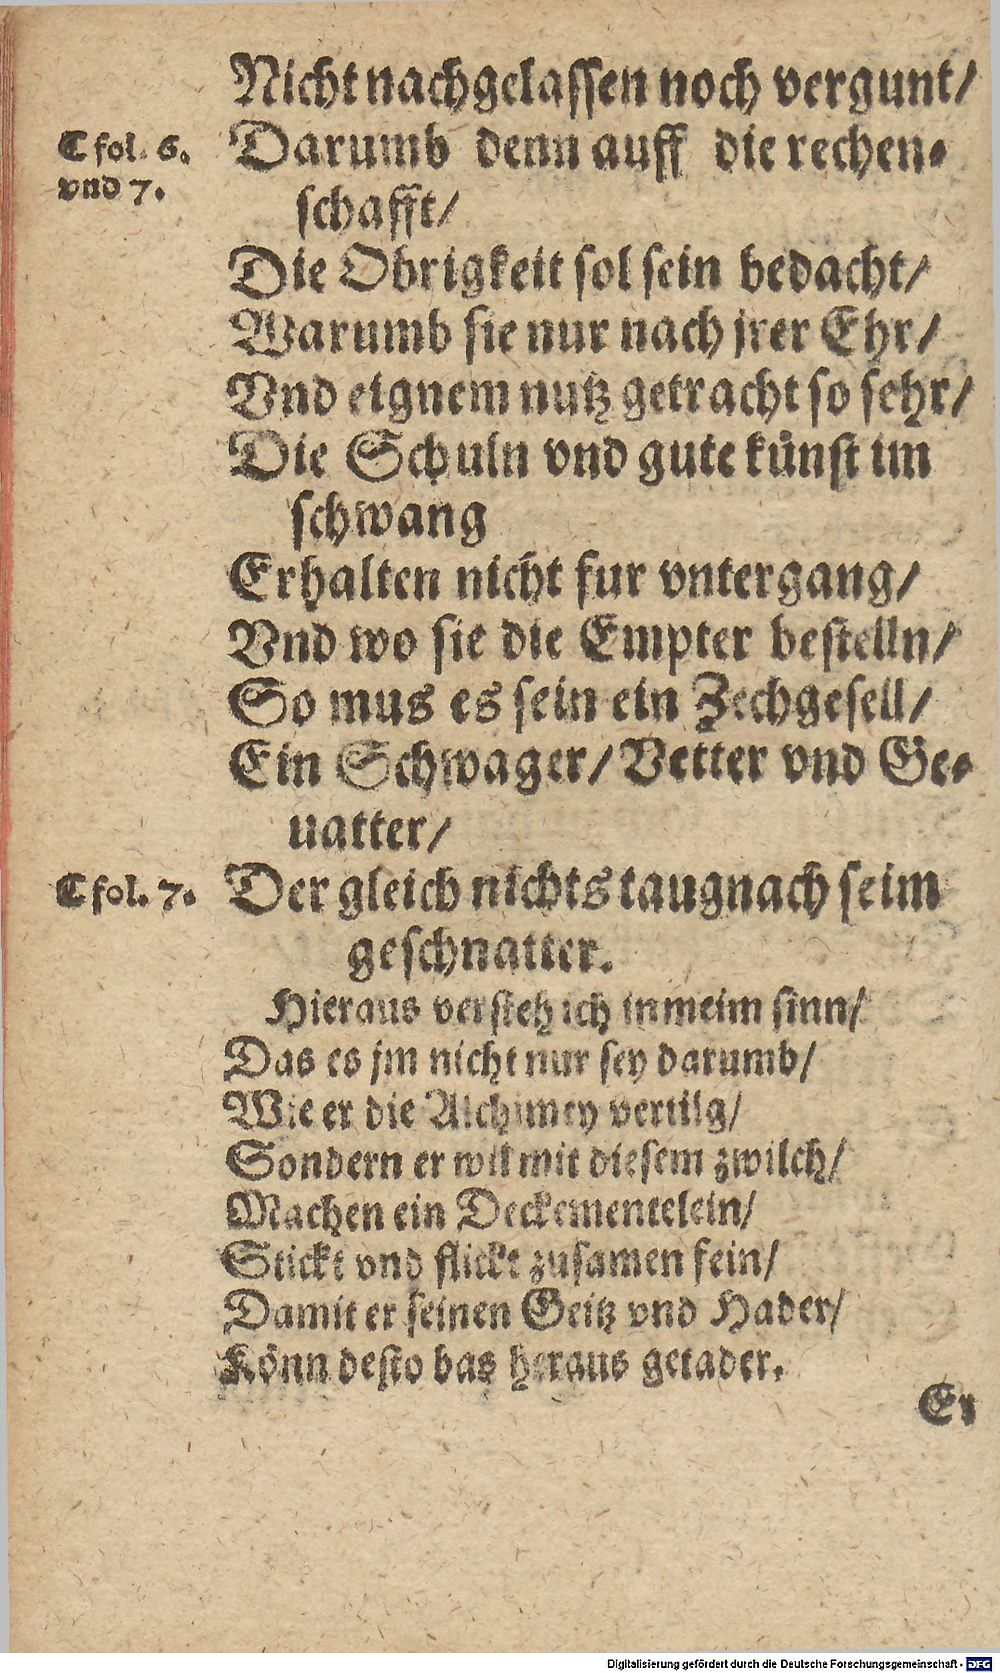 Nicht nachgelassen noch vergunt/
C fol. 6. Darumb denn auff die rechen-
vnd 7. schafft/
Die Obrigkeit sol sein bedacht/
Warumb sie nur nach jrer Ehr/
Vnd eignem nutz getracht so sehr/
Die Schuln vnd gute künst im
schwang
Erhalten nicht fur vntergang/
Vnd wo sie die Empter bestelln/
So mus es sein ein Zechgesell/
Ein Schwager/ Vetter vnd Ge-
uatter/
C fol. 7. Der gleich nichts taug nach seim
geschnatter.
Hieraus versteh ich in meim sinn/
Das es jm nicht nur sey darumb/
Wie er die Alchimey vertilg/
Sondern er wil mit diesem zwilch/
Machen ein Deckementelein/
Stickt vnd flickt zusamen fein/
Damit er seinen Geitz vnd Hader/
Könn desto bas heraus getader.
Er
Digitalisierung gefördert durch die Deutsche Forschungsgemeinschaft - DFG